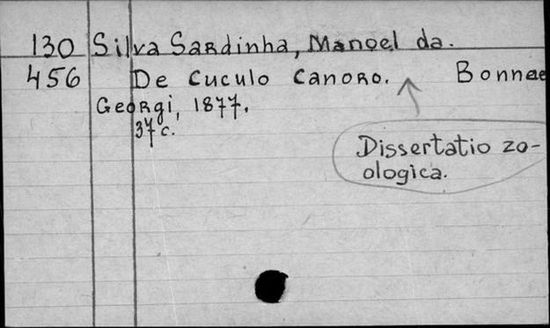 130 Silva Sardinha, Manoel da.
456 De Cuculo Canoro. Bonnae
Georgi, 1877.
37 c.
Dissertatio zo-
ologica.